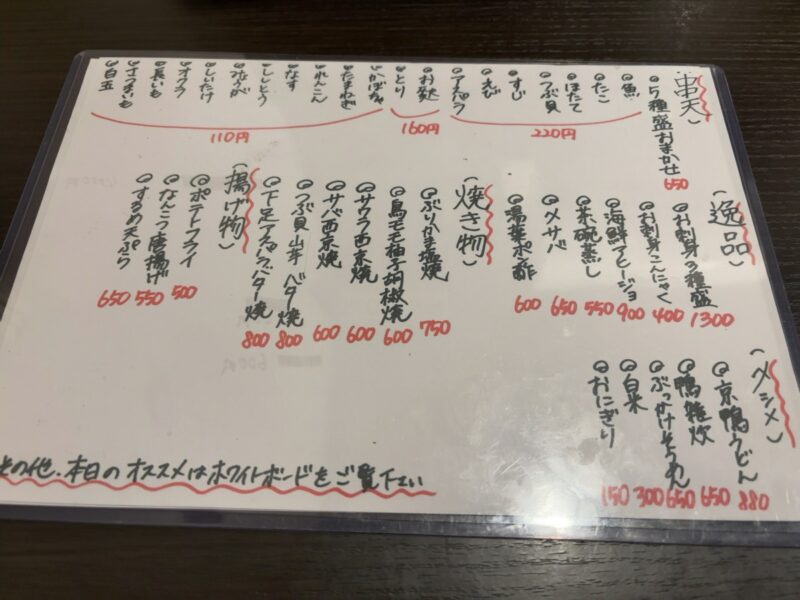 串天
5種盛おまかせ 650
魚
たこ
ほたて
つぶ貝
すじ
えび
アスパラ
220円
お麩
とり
160円
かぼちゃ
たまねぎ
れんこん
なす
ししとう
みょうが
しいたけ
オクラ
長いも
さつまいも
白玉
110円
逸品
お刺身3種盛 1300
お刺身こんにゃく 400
海鮮アヒージョ 900
茶碗蒸し 550
〆サバ 650
湯葉ポン酢 600
焼き物
ぶりかま塩焼 750
鳥モモ柚子胡椒焼 600
サワラ西京焼 600
サバ西京焼 600
つぶ貝山芋バター焼 800
下足アスパラバター焼 800
揚げ物
ポテトフライ 500
なんこつ唐揚げ 550
するめ天ぷら 650
〆シメ
京鴨うどん 880
鴨雑炊 650
ぶっかけそうめん 650
白米 300
おにぎり 150
その他、本日のオススメはホワイトボードをご覧下さい